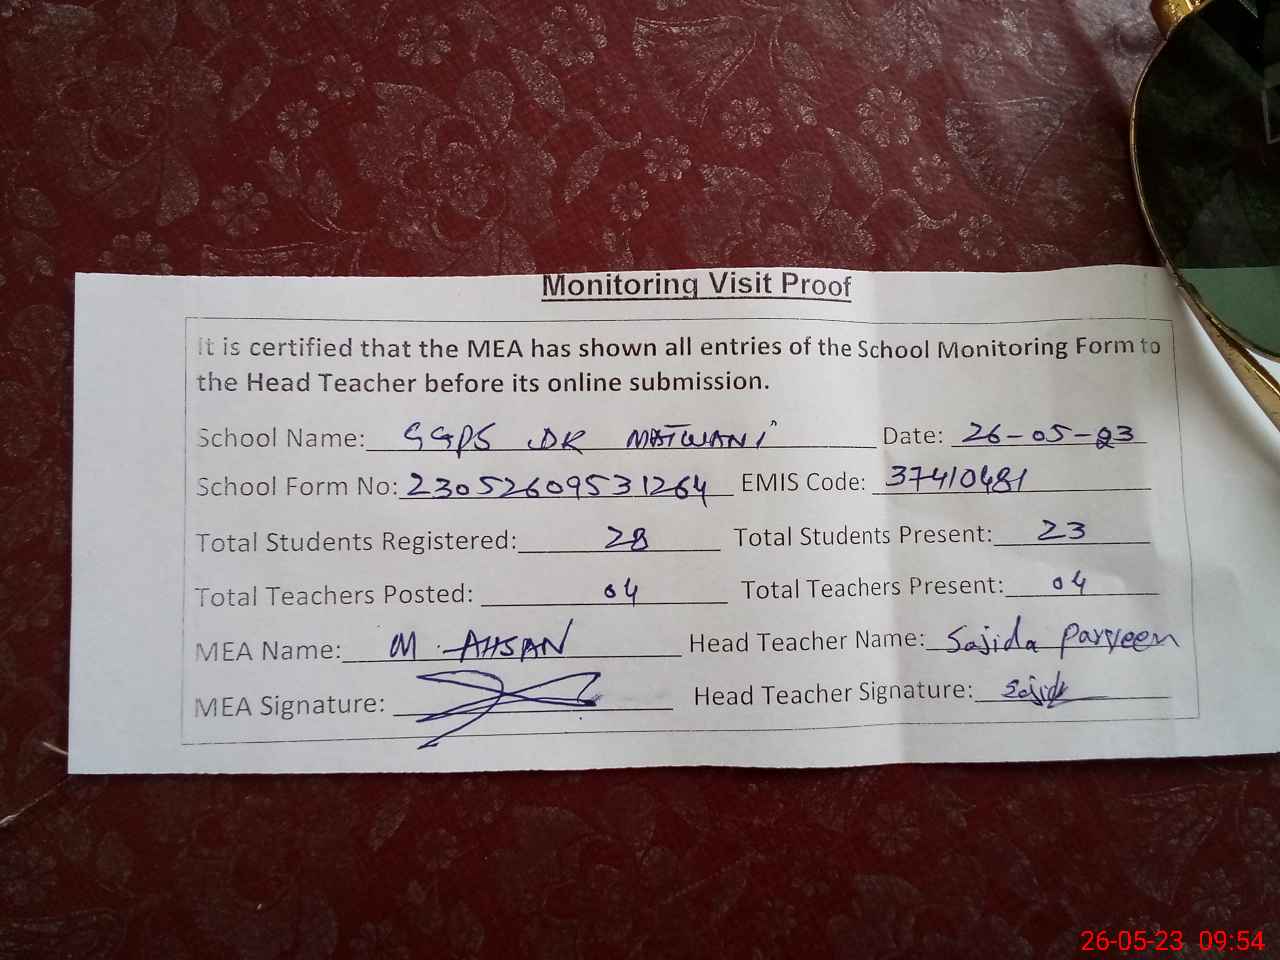 Monitoring Visit Proof
It is certified that the MEA has shown all entries of the School Monitoring Form to
the Head Teacher before its online submission.
School Name: GGPS DK MATWANI Date: 26-05-23
School Form No: 23052609531264 EMIS Code: 37410481
Total Students Registered: 28 Total Students Present: 23
Total Teachers Posted: 04 Total Teachers Present: 04
MEA Name: M. AHSAN Head Teacher Name: Sajida Parveen
MEA Signature: Head Teacher Signature: Sajida
26-05-23 09:54